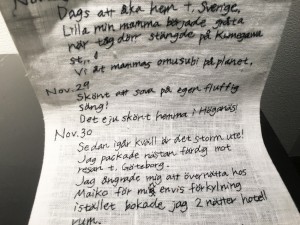 Nov.
Dags att åka hem t. Sverige,
Lilla min mamma började gråta
när tåg dörr stängde på Kumagawa
st,..!
Vi åt mammas omusubi på planet,
Nov.29
Skönt att sova på egen fluffig
säng!
Det e ju skönt hemma i Höganäs!
Nov.30
Sedan igår kväll är det storm ute!
Jag packade nästan färdig mot
resan t. Göteborg.
Jag ångrade mig att övernätta hos
Maiko för min envis förkylning
istället bokade jag 2 nätter hotell
rum.